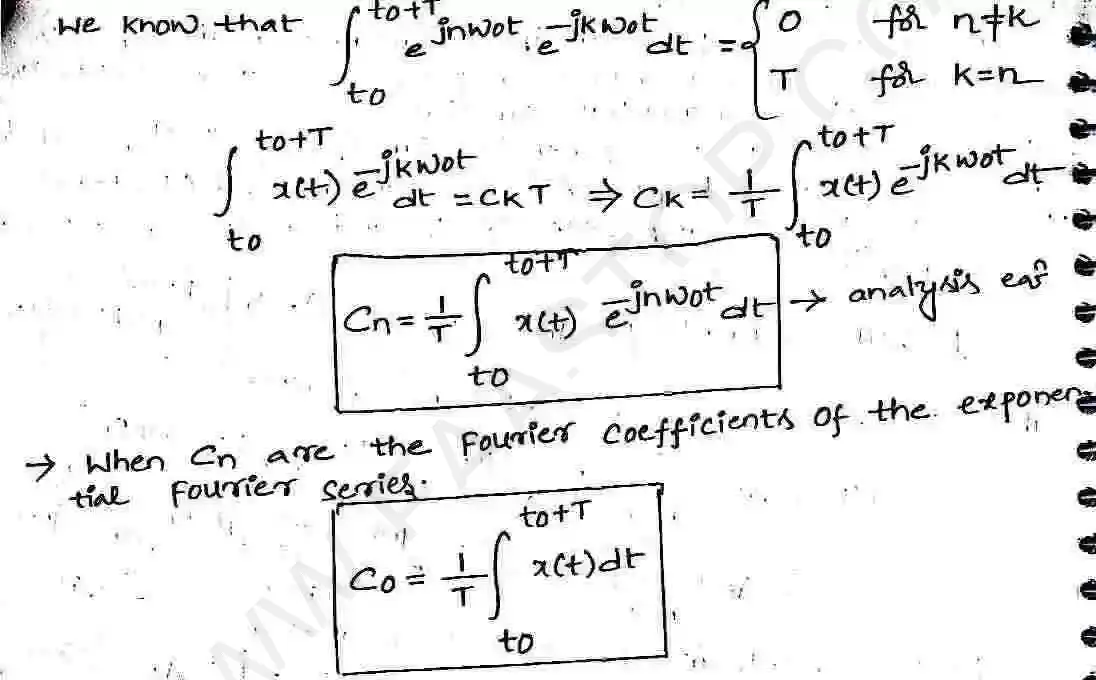 We know that ∫_{to}^{to+T} e^{jnwot} . e^{-jkwot} dt = { 0 for n≠k
T for k=n
∫_{to}^{to+T} x(t) e^{-jkwot} dt = CkT ⇒ Ck = 1/T ∫_{to}^{to+T} x(t) e^{-jkwot} dt
Cn = 1/T ∫_{to}^{to+T} x(t) e^{-jnwot} dt → analysis eqn
→ When Cn are the Fourier coefficients of the exponen
tial Fourier series.
Co = 1/T ∫_{to}^{to+T} x(t)dt